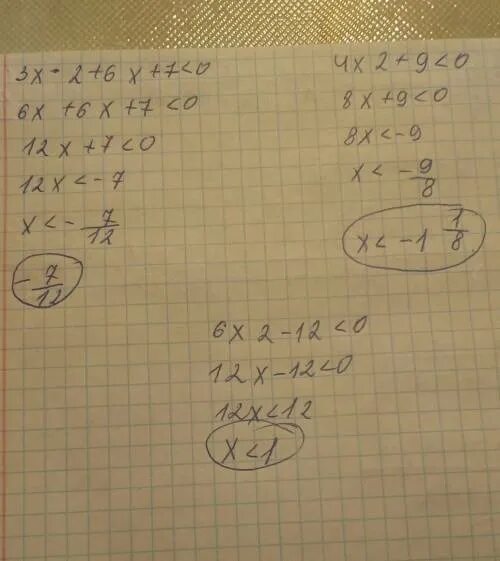 3x - 2 + 6x + 7 < 0
6x + 6x + 7 < 0
12x + 7 < 0
12x < -7
x < - 7/12
- 7/12
4x 2 + 9 < 0
8x + 9 < 0
8x < -9
x < - 9/8
x < -1 1/8
6x 2 - 12 < 0
12x - 12 < 0
12x < 12
x < 1